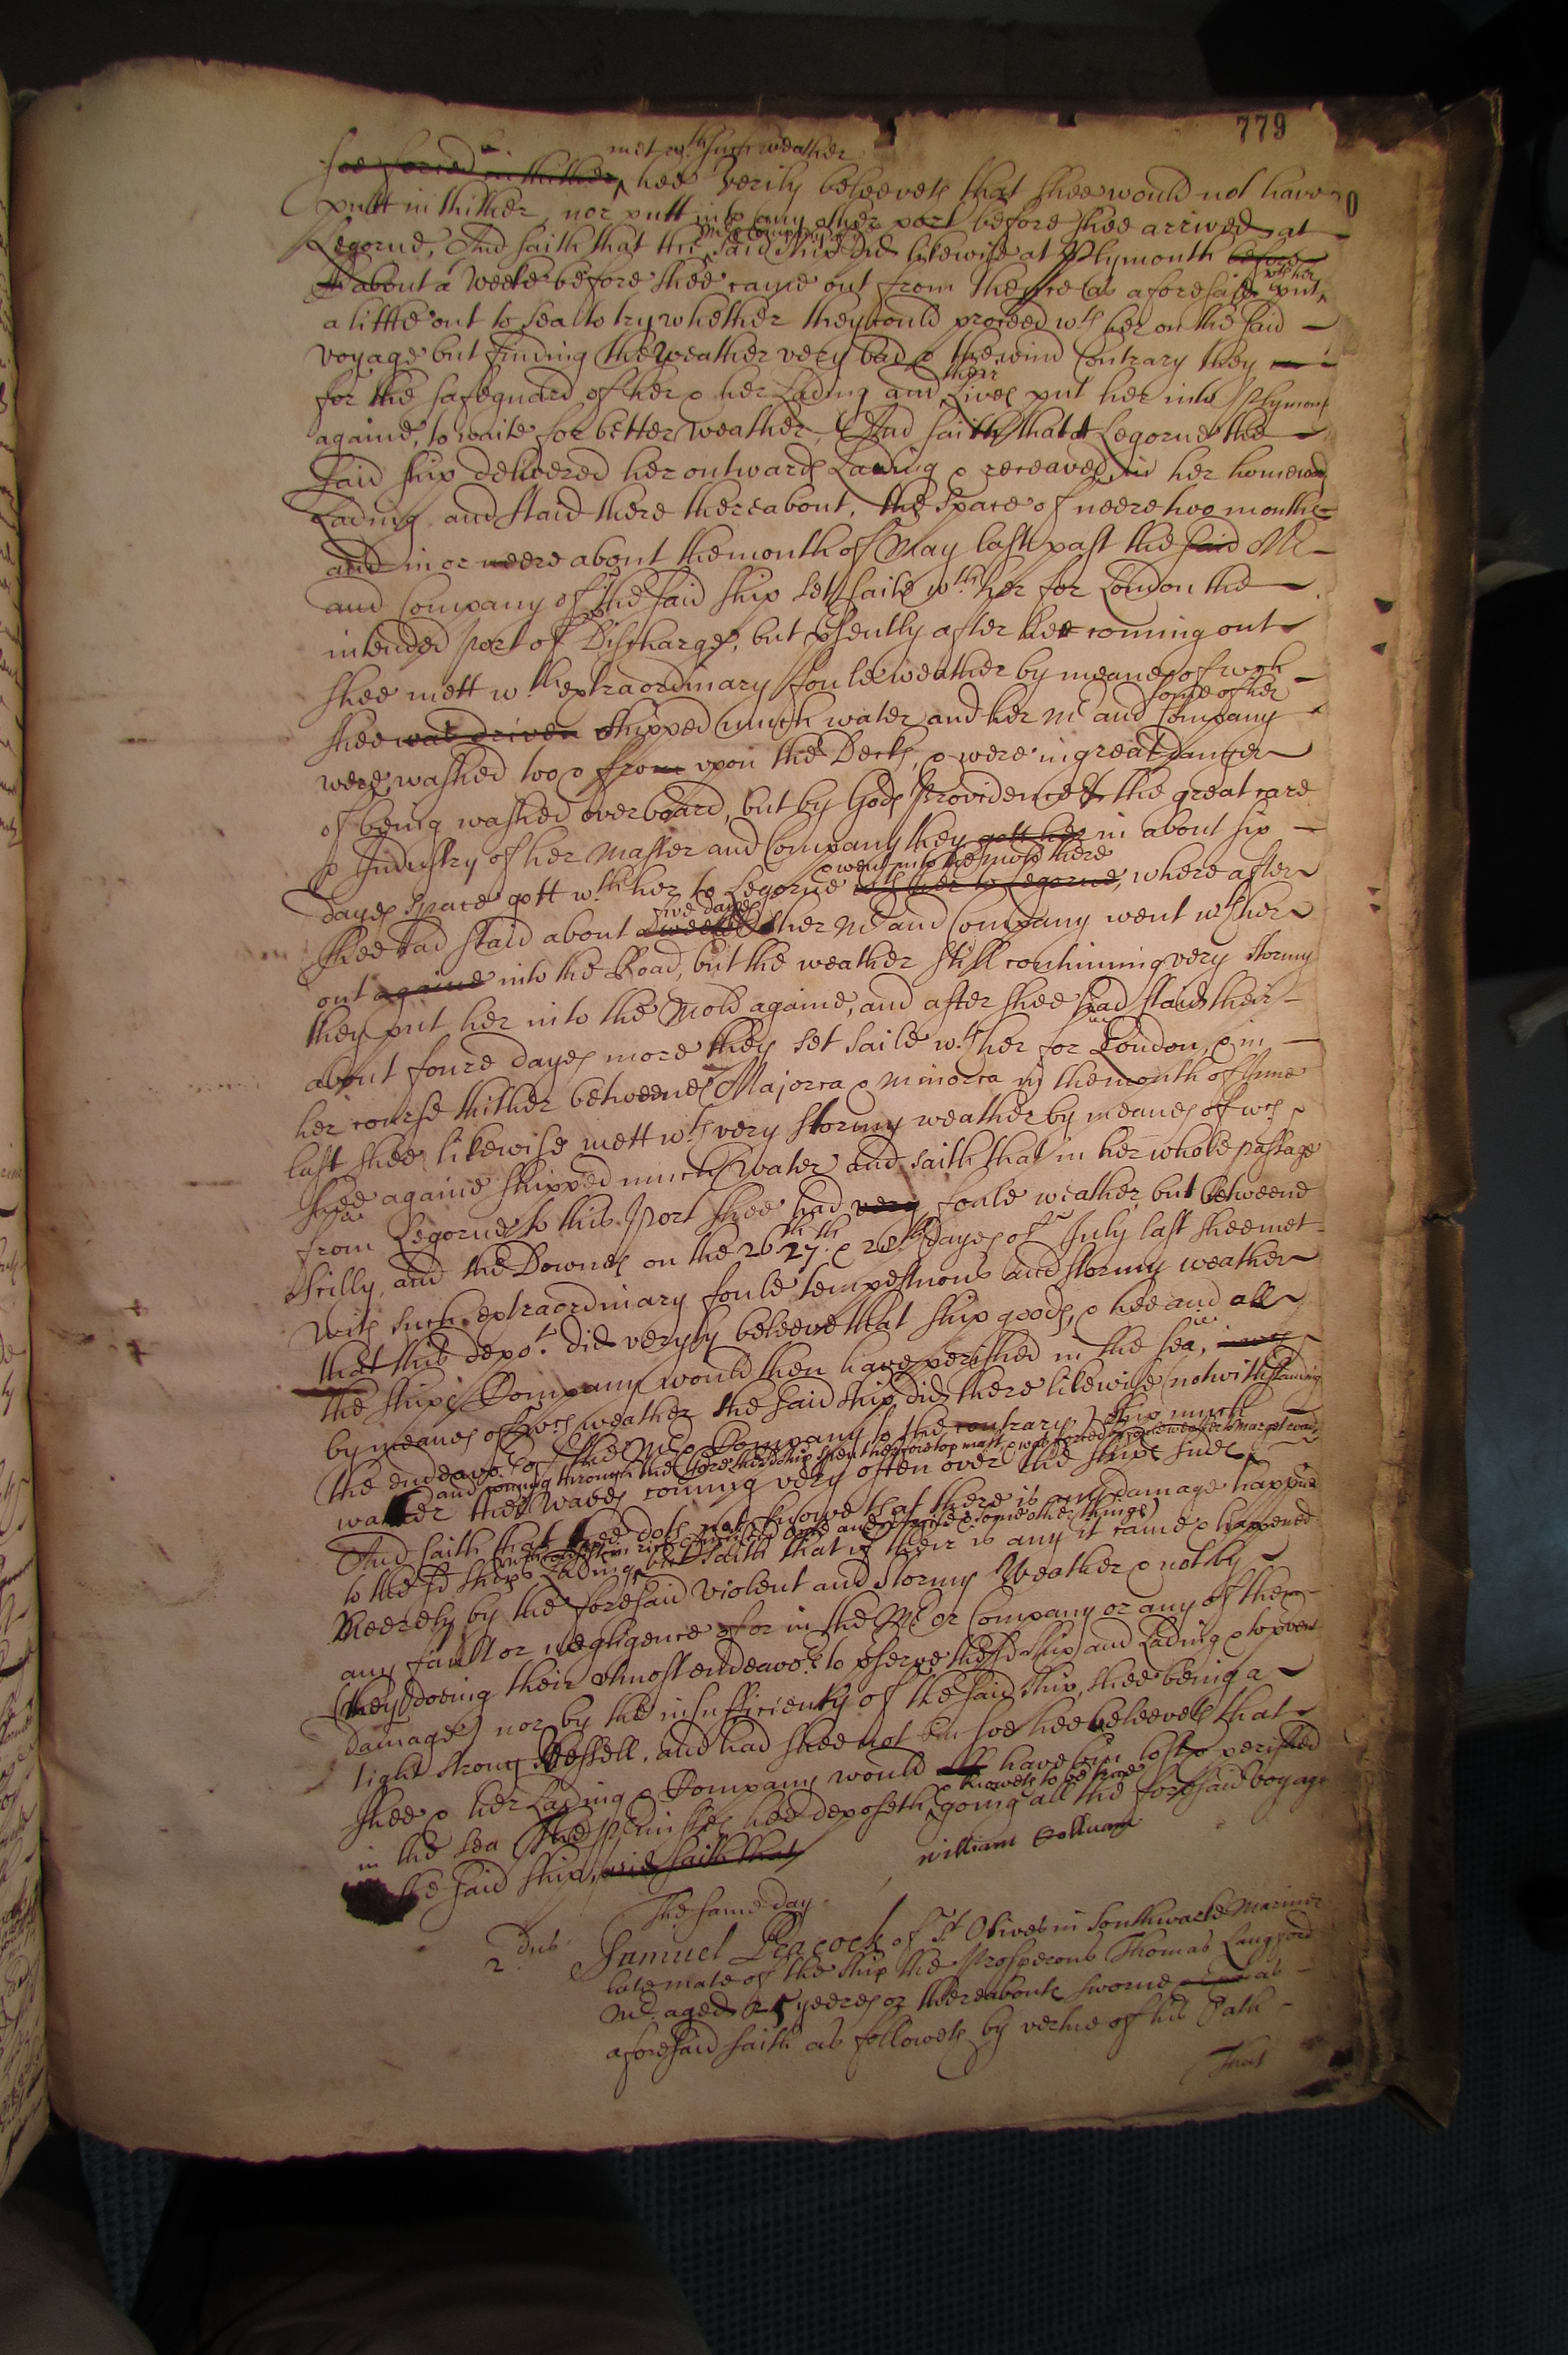 779
met wth such weather
soe forced in thither, hee verily beleeveth that shee would not have
putt in thither, nor putt into any other port before shee arrived at
Legorne, And saith that the mr & company of the said ship did likewise at Plymouth before
about a weeke before shee came out from thence (as aforesaid) put wth her
a little out to sea to try whether they could proceed wth her on the said
voyage but finding the weather very bad & the wind contrary they
for the safeguard of her & her Lading and their Lives put her into Plymouth
againe, to waite for better weather, And saith that at Legorne the
said ship delivered her outwards Lading & receaved in her homeward
Lading and staid there thereabout, the space of neere two monthes
and in or neere about the month of May last past the said Mr
and Company of the said ship set saile wth her for London the
intended port of Discharge, but psently after her coming out
shee mett wth extraordinary foule weather by meanes of wch
shee was driven shipped much water and her Mr and some of her Company
were washed too & from upon the Decks, & were in great danger
of being washed overboard, but by Gods Providence & the great care
& Industry of her Master and Company they gott her in about six
dayes space gott wth her to Legorne & went into the mold there wth her to Legorne, where after
shee had staid about a weeke five dayes her Mr and Company went wth her
out againe into the Road, but the weather still continuing very stormy
they put her into the Mold againe, and after shee had staid their
about foure dayes more they set saile wth her for London, & in
her course thither betweene Majorca & Minorca in the month of June
last shee likewise mett wth very stormy weather by meanes of wch
shee againe shipped much water and saith that in her whole passage
from Legorne to this Port shee had very foule weather, but betweene
Scilly, and the Downes on the 26th 27th & 28th dayes of July last shee met
with such extraordinary foule tempestuous and stormy weather
that this depot did veryly beleeve that ship goods, & hee and all
the ships Company would then have perished in the sea,
by meanes of wch weather the said ship did there likewise (notwithstanding
the endeavor of the Mr & Company to the contrary) ship much
water the waves coming very often over the ships side
And saith that hee doth not knowe that there is any damage happned
to the sd ships Lading, but saith that if their is any it came & happened
Meerely by the foresaid violent and stormy Weather & not by
any fault or negligence of or in the Mr or Company or any of them
(they doeing their utmost endeavor to pserve the sd ship and Lading & to prvent
damage) nor by the insufficiency of the said ship, shee being a
tight strong Vessell, and had shee not bin soe hee beleeveth that
shee & her Lading & Company would have bin lost & perished
in the sea The premisses hee deposeth & knoweth to be true going all the foresaid voyage
the said ship, and saith that
william
The same day
2 dus
Samuel Peacock of St Olives in Southwarke Mariner
late mate of the ship the Prosperous Thomas Langford
Mr aged 25 yeeres or thereabouts sworne as
aforesaid saith as followeth by vertue of his Oath
That